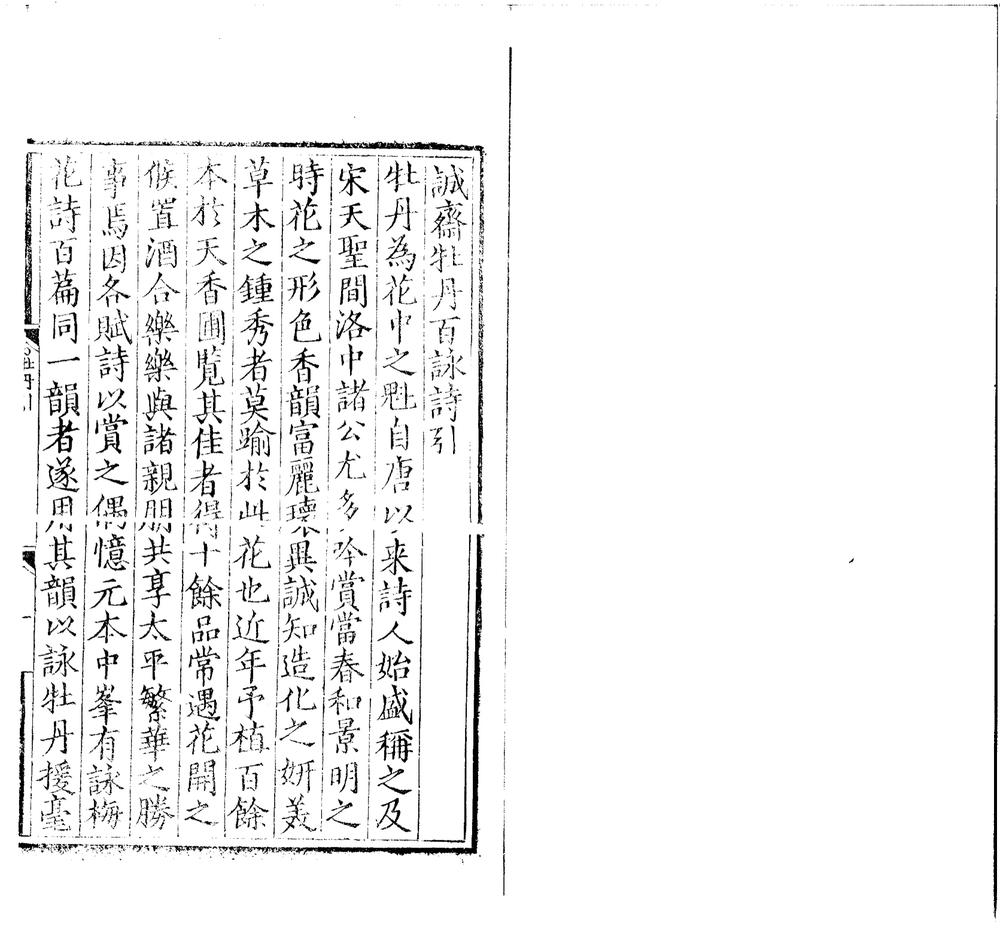 誠齋牡丹百詠詩引
牡丹為花中之魁自唐以来詩人始盛稱之及
宋天聖間洛中諸公尤多吟賞當春和景明之
時花之形色香韻富麗瓌異誠知造化之妍美
草木之鍾秀者莫踰於此花也近年予植百餘
本於天香圃覧其佳者得十餘品常遇花開之
候置酒合樂樂與諸親朋共享太平繁華之勝
事焉因各賦詩以賞之偶憶元本中峯有詠梅
花詩百篇同一韻者遂用其韻以詠牡丹援毫